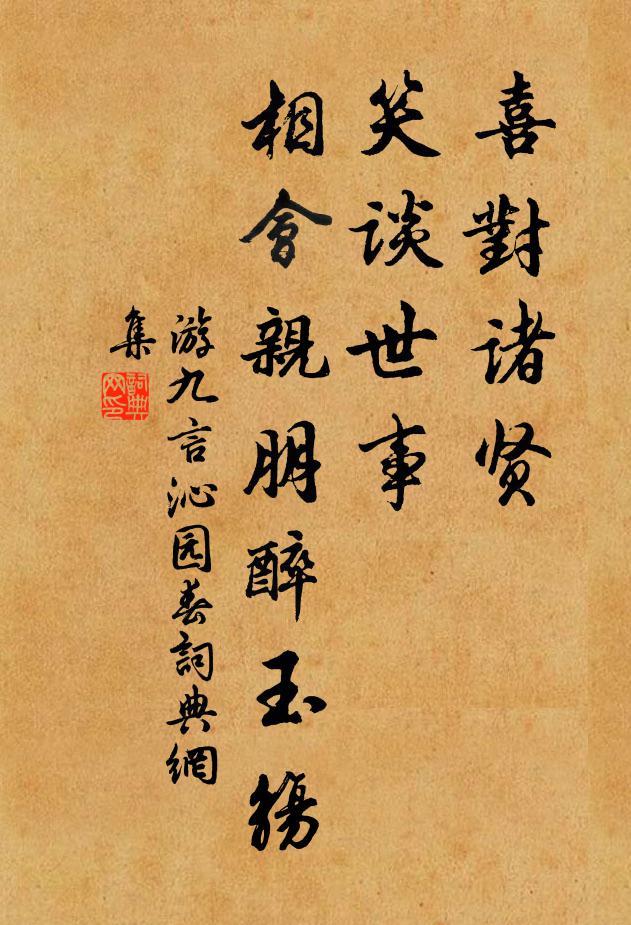 喜對诸贤
笑谈世事
相會親朋醉玉觴
游九言沁园春詞典網
集
詞典
网印